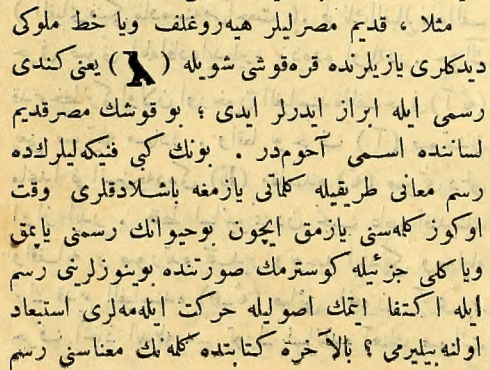 مثلا ، قديم مصرليلر هيه‌روغلف ويا خط ملوكى
ديدكلرى يازيلرنده قره‌قوشى شويله ( ) يعنى كندى
رسمى ايله ابراز ايدرلر ايدى ؛ بو قوشك مصرقديم
لساننده اسمى آحوم‌در . بونك كبى فنيكه‌ليلرك‌ده
رسم معانى طريقيله كلماتى يازمغه باشلادقلرى وقت
اوكوز كله‌سنى يازمق ايچون بوحيوانك رسمنى ياپمق
وياكلى جزئيله كوسترمك صورتنده بوينوزلرينى رسم
ايله اكتفا ايتمك اصوليله حركت ايله‌مه‌لرى استبعاد
اولنه‌بيليرمى ؟ بالآخره كتابتده كله‌نك معناسنى رسم